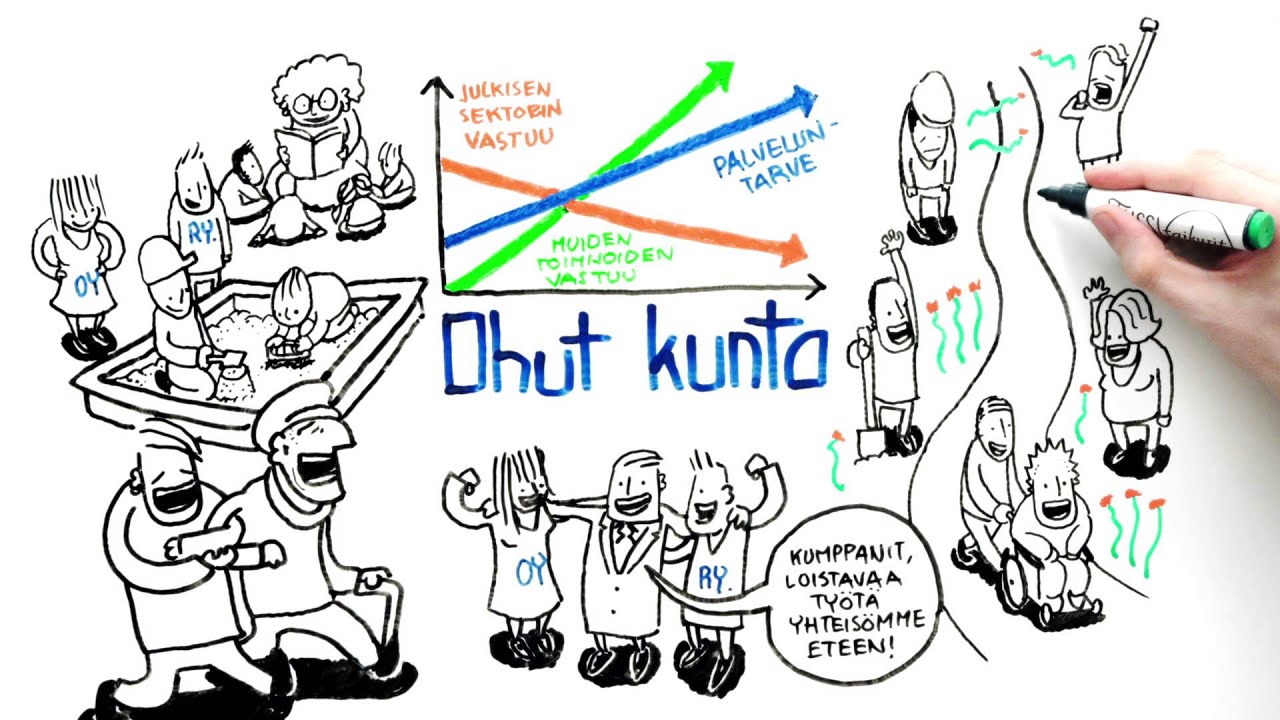 JULKISEN
SEKTORIN
VASTUU
PALVELUN-
TARVE
MUIDEN
TOIMIJOIDEN
VASTUU
Ohut kunta
OY
RY.
OY
RY.
KUMPPANIT,
LOISTAVAA
TYÖTÄ
YHTEISÖMME
ETEEN!